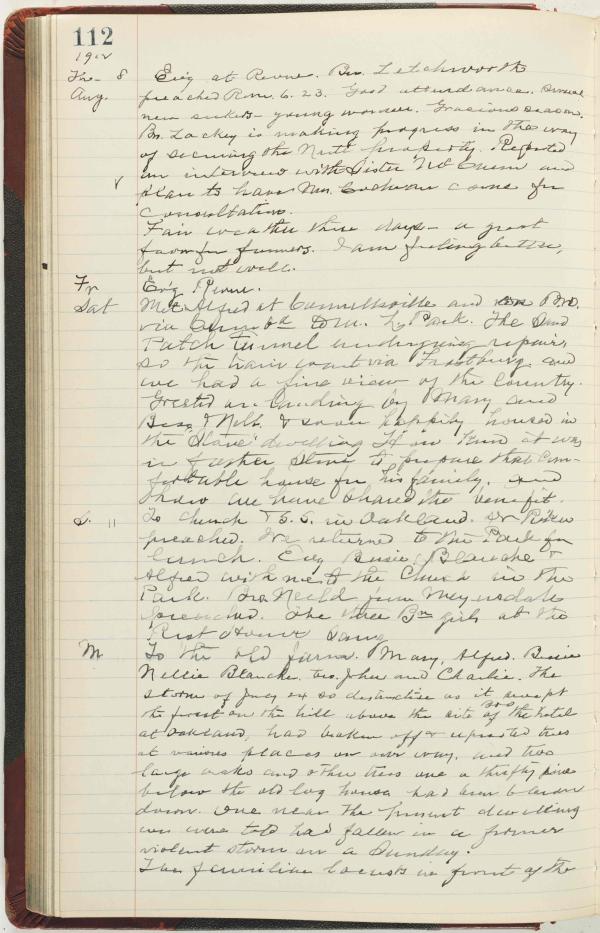 112
1912
Thu - 8 Ev'g at Revere. Bro. Letchworth
Aug. preached Rom. 6. 23. Good attendance. Several
new seekers - young women. Gracious season.
Br. Lackey is making progress in the way
of securing the Nutt property. Reported
an interview with Sister and
plan to have Mrs. Cochrane come for
consultation.
Fair weather three days - a great
favor for farmers. I am feeling better,
but not well.
Fr Ev'g Revere.
Sat Met Alfred at Connellsville and Bro.
via to Mt. L. Park. The Sand
Patch tunnel undergoing repairs,
so the train went via Frostburg, and
we had a fine view of the country.
Greeted on landing by Mary and
Bess & Nell. & soon happily housed in
the "Stone" dwelling. How kind it was
in father Stone to prepare that com-
fortable house for his family, and
how we have shared the benefit.
S. 11 To church & S. S. in Oakland. Dr
preached. We returned to the Park for
lunch. Ev'g Bessie, Blanche &
Alfred with me to the Church in the
Park. Bro. Neeld from Meyersdale
preached. The three girls at the
Rest House sang.
M To the old farm. Mary, Alfred, Bessie
Nellie Blanche, two John and Charlie. The
storm of so destructive as it swept
the forest on the hill above the site of the hotel
at Oakland, had broken off & uprooted trees
at various places on our way, and two
large oaks and other trees one a thrifty pine
below the old log house had been blown
down. One near the present dwelling
we were told had fallen in a former
violent storm on a Sunday.
The familiar locusts in front of the